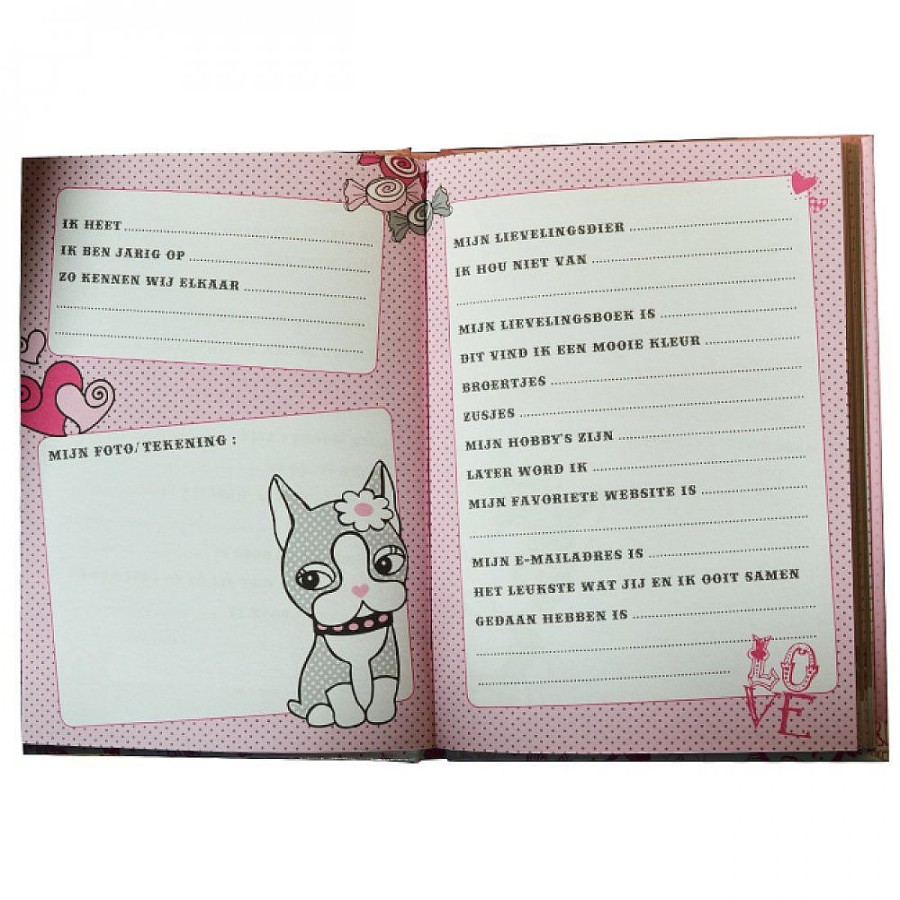 IK HEET
IK BEN JARIG OP
ZO KENNEN WIJ ELKAAR
MIJN FOTO/TEKENING :
MIJN LIEVELINGSDIER
IK HOU NIET VAN
MIJN LIEVELINGSBOEK IS
DIT VIND IK EEN MOOIE KLEUR
BROERTJES
ZUSJES
MIJN HOBBY'S ZIJN
LATER WORD IK
MIJN FAVORIETE WEBSITE IS
MIJN E-MAILADRES IS
HET LEUKSTE WAT JIJ EN IK OOIT SAMEN
GEDAAN HEBBEN IS
LO
VE